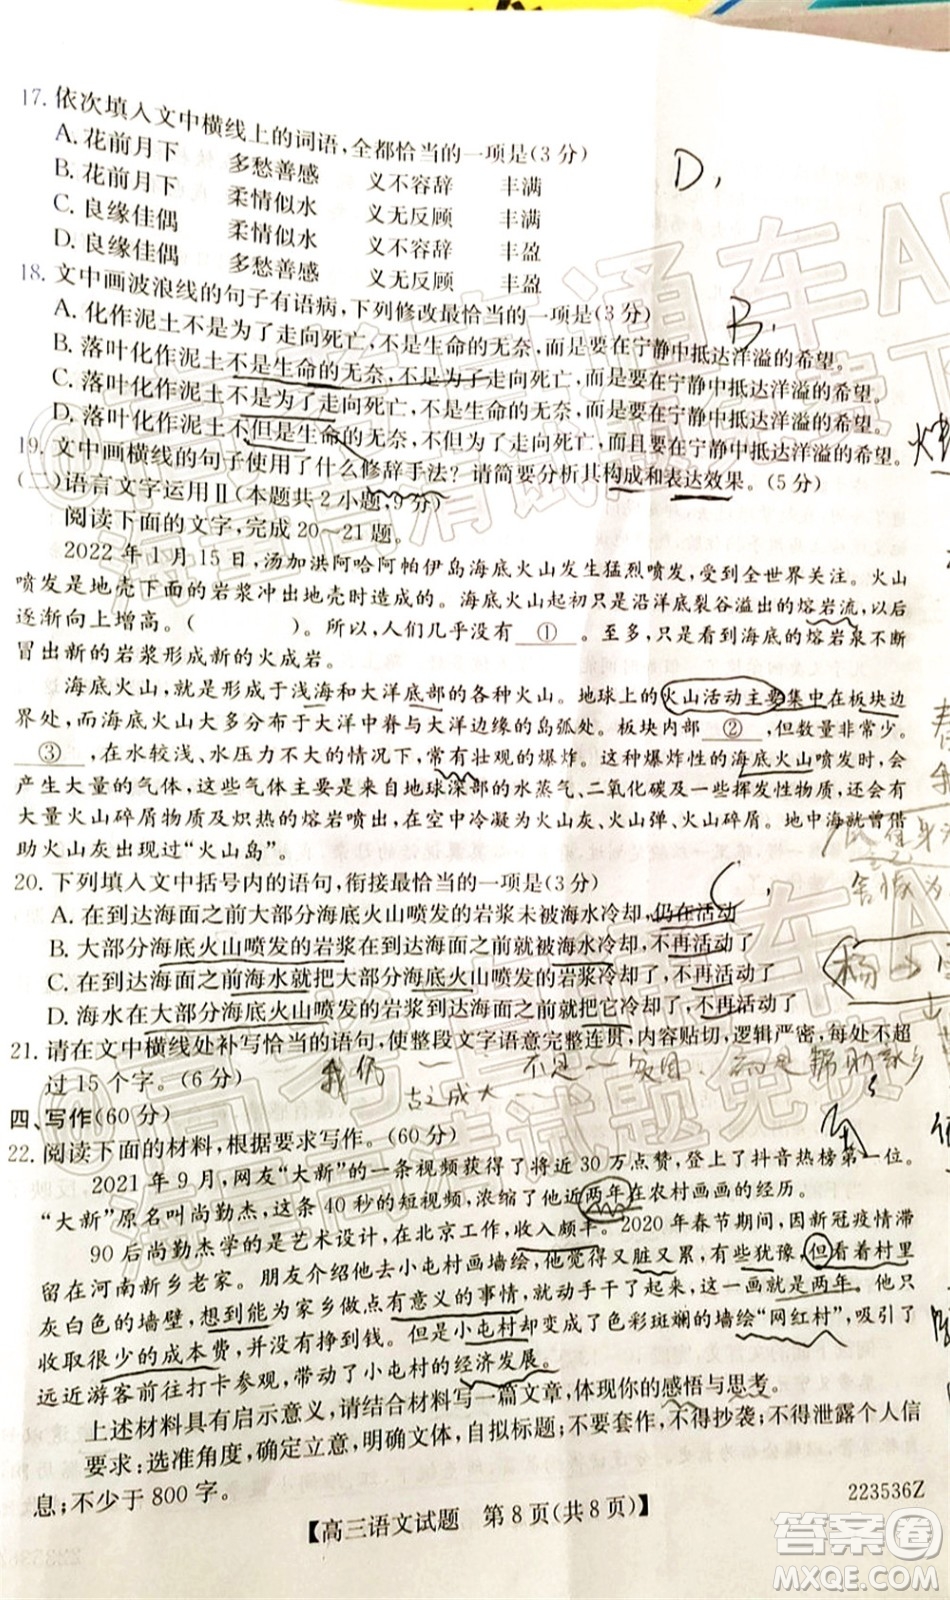 17. 依次填入文中横线上的词语,全都恰当的一项是(3 分)
A. 花前月下 多愁善感 义不容辞 丰满
B. 花前月下 柔情似水 义无反顾 丰满
C. 良缘佳偶 柔情似水 义不容辞 丰盈
D. 良缘佳偶 多愁善感 义无反顾 丰盈
D.
18. 文中画波浪线的句子有语病,下列修改最恰当的一项是(3 分)
B.
A. 化作泥土不是为了走向死亡,不是生命的无奈,而是要在宁静中抵达洋溢的希望。
B. 落叶化作泥土不是生命的无奈,不是为了走向死亡,而是要在宁静中抵达洋溢的希望。
C. 落叶化作泥土不是为了走向死亡,不是生命的无奈,而是要在宁静中抵达洋溢的希望。
D. 落叶化作泥土不但是生命的无奈,不是为了走向死亡,而是要在宁静中抵达洋溢的希望。
19. 文中画横线的句子使用了什么修辞手法? 请简要分析其构成和表达效果。(5 分)
(二)语言文字运用Ⅱ(本题共 2 小题,9 分)
阅读下面的文字,完成 20~21 题。
2022 年 1 月 15 日,汤加洪阿哈阿帕伊岛海底火山发生猛烈喷发,受到全世界关注。火山
喷发是地壳下面的岩浆冲出地壳时造成的。海底火山起初只是沿洋底裂谷溢出的熔岩流,以后
逐渐向上增高。( )。所以,人们几乎没有 ① 。至多,只是看到海底的熔岩泉不断
冒出新的岩浆形成新的火成岩。
海底火山,就是形成于浅海和大洋底部的各种火山。地球上的火山活动主要集中在板块边
界处,而海底火山大多分布于大洋中脊与大洋边缘的岛弧处。板块内部 ② ,但数量非常少。
③ ,在水较浅、水压力不大的情况下,常有壮观的爆炸。这种爆炸性的海底火山喷发时,会
产生大量的气体,这些气体主要是来自地球深部的水蒸气、二氧化碳及一些挥发性物质,还会有
大量火山碎屑物质及炽热的熔岩喷出,在空中冷凝为火山灰、火山弹、火山碎屑。地中海就曾借
助火山灰出现过“火山岛”。
20. 下列填入文中括号内的语句,衔接最恰当的一项是(3 分)
C.
A. 在到达海面之前大部分海底火山喷发的岩浆未被海水冷却,仍在活动
B. 大部分海底火山喷发的岩浆在到达海面之前就被海水冷却,不再活动了
C. 在到达海面之前海水就把大部分海底火山喷发的岩浆冷却了,不再活动了
D. 海水在大部分海底火山喷发的岩浆到达海面之前就把它冷却了,不再活动了
21. 请在文中横线处补写恰当的语句,使整段文字语意完整连贯,内容贴切,逻辑严密,每处不超
过 15 个字。(6 分)
四、写作(60 分)
22. 阅读下面的材料,根据要求写作。(60 分)
2021 年 9 月,网友“大新”的一条视频获得了将近 30 万点赞,登上了抖音热榜第一位。
“大新”原名叫尚勤杰,这条 40 秒的短视频,浓缩了他近两年在农村画画的经历。
90 后尚勤杰学的是艺术设计,在北京工作,收入颇丰。2020 年春节期间,因新冠疫情滞
留在河南新乡老家。朋友介绍他去小屯村画墙绘,他觉得又脏又累,有些犹豫,但看着村里
灰白色的墙壁,想到能为家乡做点有意义的事情,就动手干了起来,一画就是两年。他只
收取很少的成本费,并没有挣到钱。但是小屯村却变成了色彩斑斓的墙绘“网红村”,吸引了
远近游客前往打卡参观,带动了小屯村的经济发展。
上述材料具有启示意义,请结合材料写一篇文章,体现你的感悟与思考。
要求:选准角度,确定立意,明确文体,自拟标题;不要套作,不得抄袭;不得泄露个人信
息;不少于 800 字。
223536Z
【高三语文试题 第 8 页(共 8 页)】
答案圈
MXQE.COM